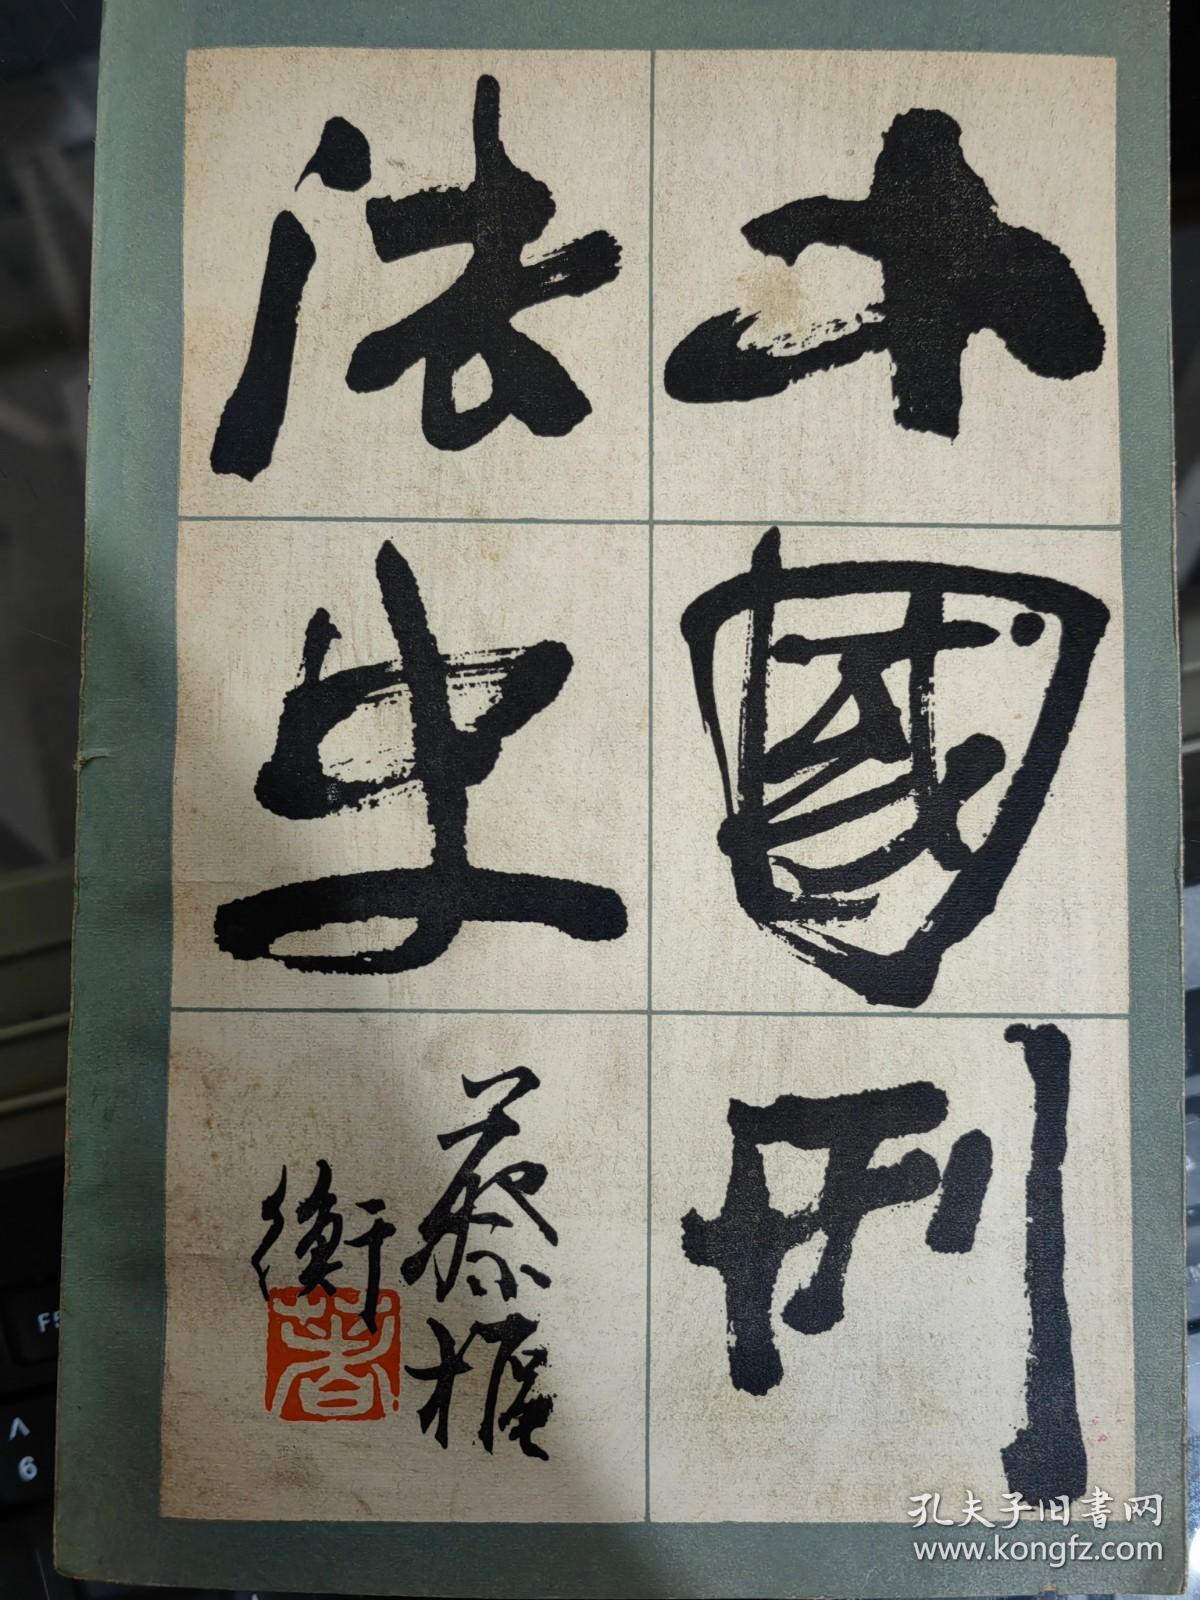 中國刑
法史
蔡樞
衡
著
孔夫子旧書网
www.kongfz.com
F5
^
6